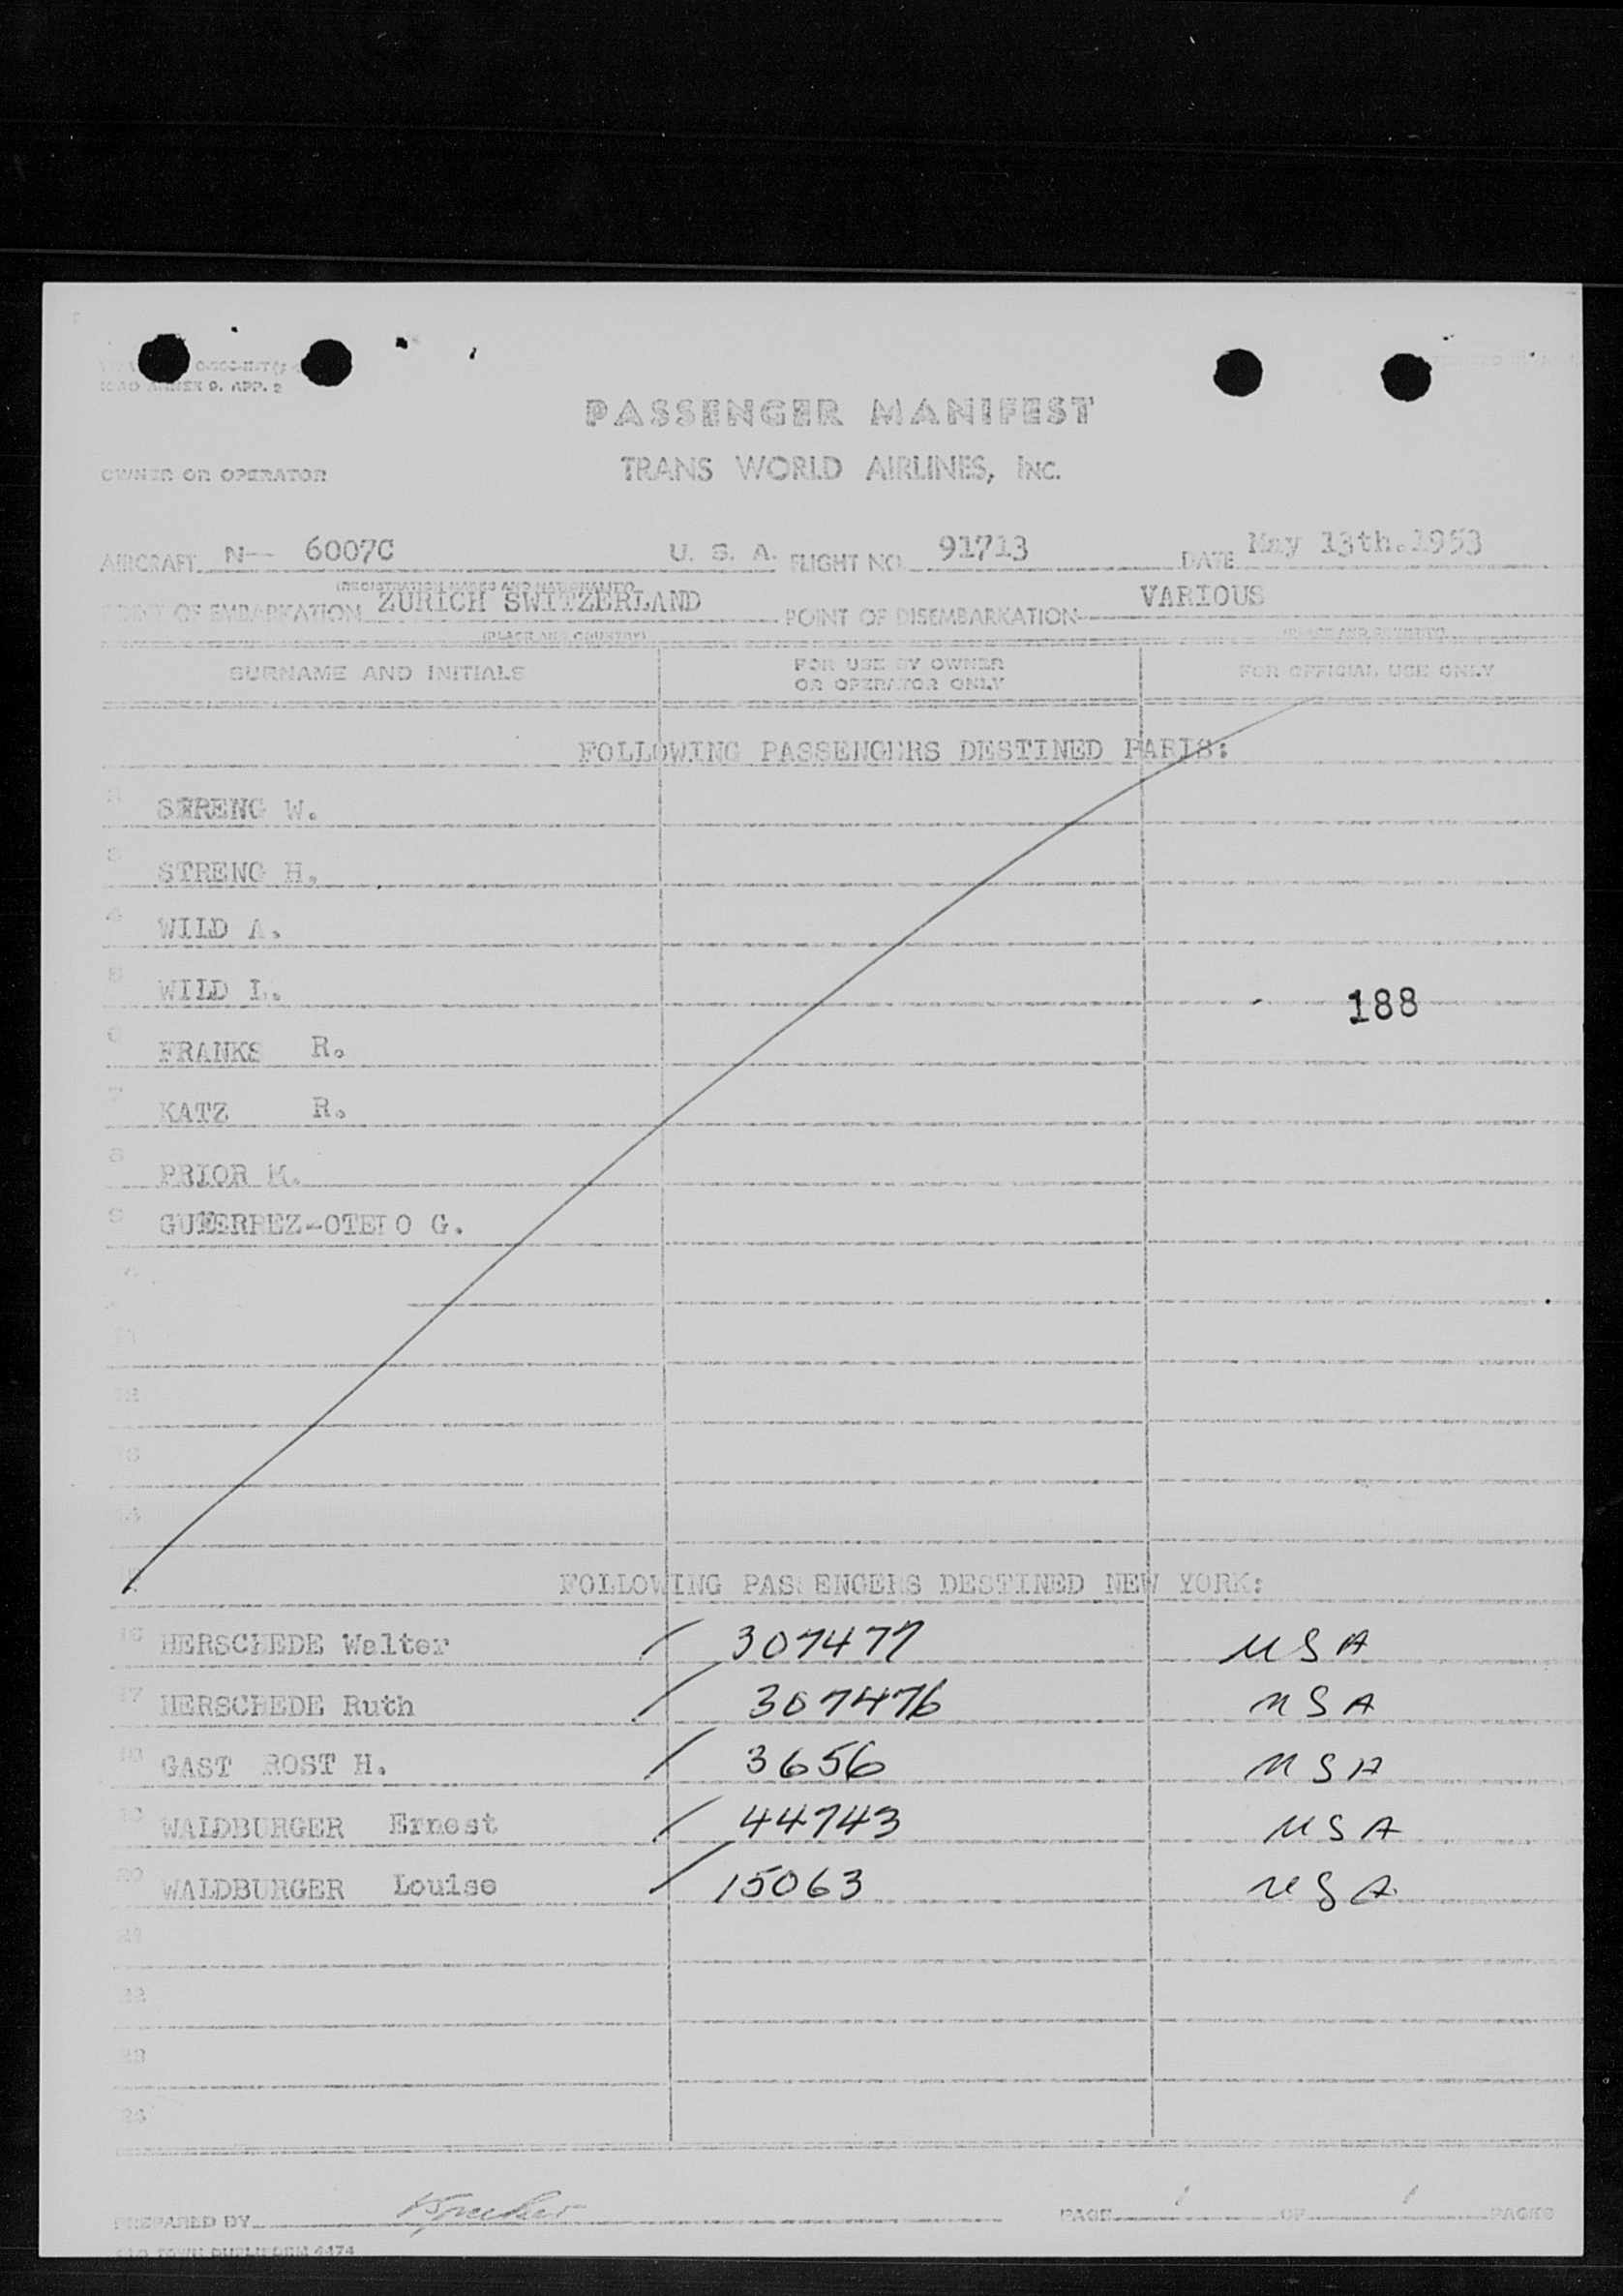 ICAO ANNEX 9, APP. 2
PASSENGER MANIFEST
OWNER OR OPERATOR TRANS WORLD AIRLINES, INC.
AIRCRAFT N-- 6007C U. S. A. FLIGHT NO. 91713 DATE May 13th.1953
(REGISTRATION MARKS AND NATIONALITY)
POINT OF EMBARKATION ZURICH SWITZERLAND POINT OF DISEMBARKATION VARIOUS
(PLACE AND COUNTRY) (PLACE AND COUNTRY)
SURNAME AND INITIALS FOR USE BY OWNER OR OPERATOR ONLY FOR OFFICIAL USE ONLY
FOLLOWING PASSENGERS DESTINED PARIS:
W.
3 STRENG H.
4 WILD A.
5 WILD L.
188
6 FRANKS R.
7 KATZ R.
8 PRIOR M.
9 G.
11
12
13
14
FOLLOWING PASSENGERS DESTINED NEW YORK:
16 HERSCHEDE Walter / 307477 USA
17 HERSCHEDE Ruth / 307476 USA
18 GAST ROST H. / 3656 USA
19 WALDBURGER Ernest / 44743 USA
20 WALDBURGER Louise / 15063 USA
21
22
23
PREPARED BY PAGE 1 OF 1 PAGES